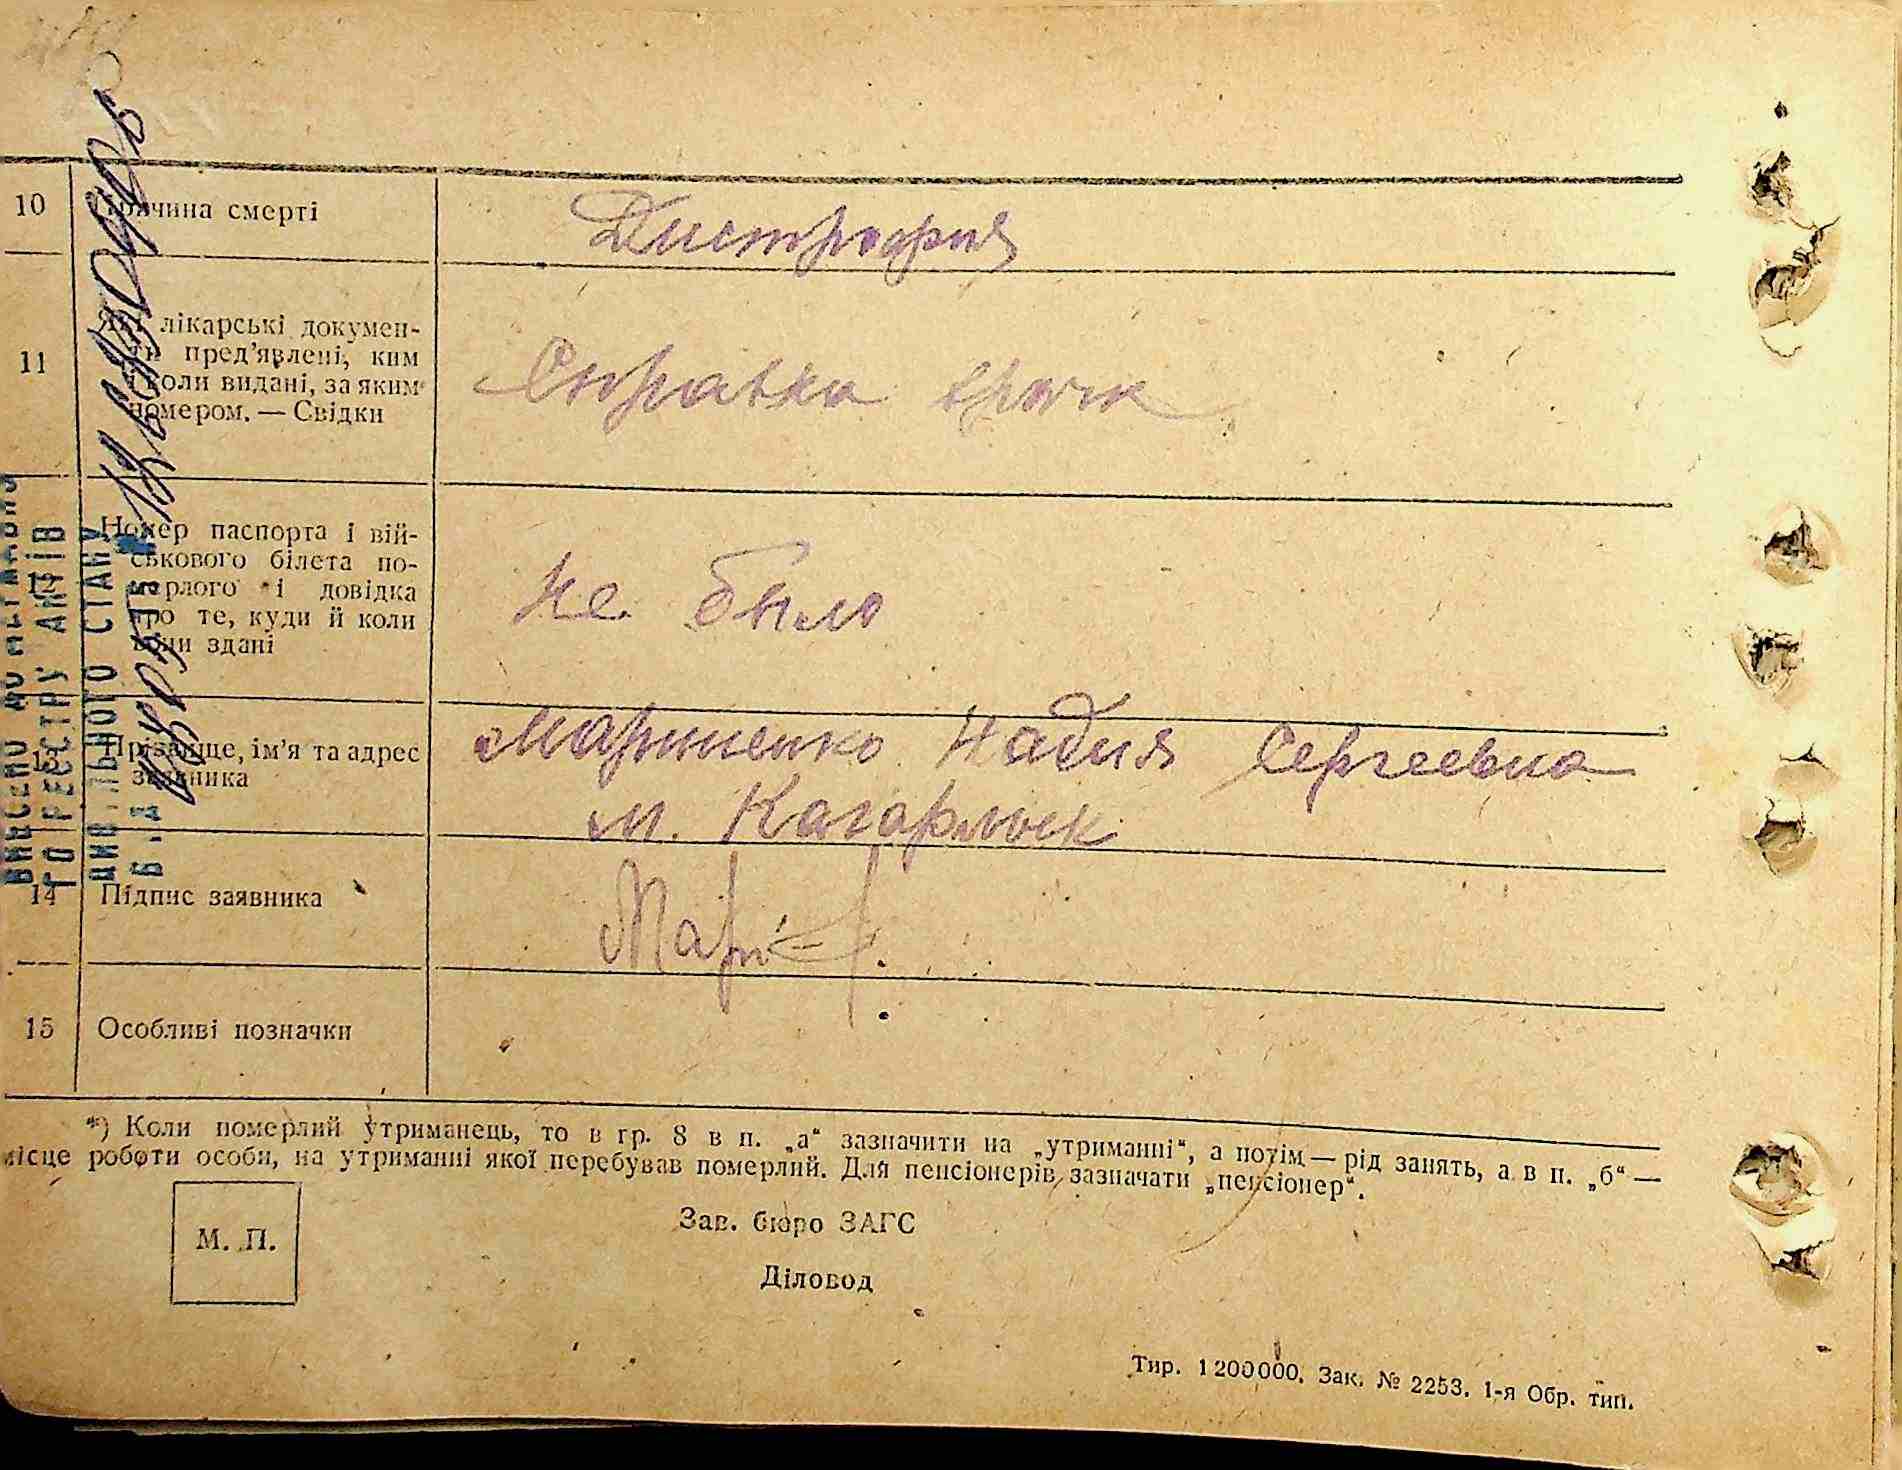 10 Причина смерті Дистрофия
11 Які лікарські докумен-
ти пред’явлені, ким
і коли видані, за яким
номером. — Свідки
Справка врача
12 Номер паспорта і вій-
ськового білета по-
мерлого і довідка
про те, куди й коли
вони здані
не было
13 Прізвище, ім’я та адрес
заявника
Мариненко Надия Сергеевна
м. Кагарлык
14 Підпис заявника
15 Особливі позначки
*) Коли померлий утриманець, то в гр. 8 в п. „а“ зазначити на „утриманні“, а потім — рід занять, а в п. „б“ —
місце роботи особи, на утриманні якої перебував померлий. Для пенсіонерів зазначати „пенсіонер“.
М. П.
Зав. бюро ЗАГС
Діловод
Тир. 1200000. Зак. № 2253. 1-я Обр. тип.
ВНЕСЕНО ДО ДЕРЖАВНО
ГО РЕЄСТРУ АКТІВ
ЦИВІЛЬНОГО СТАНУ